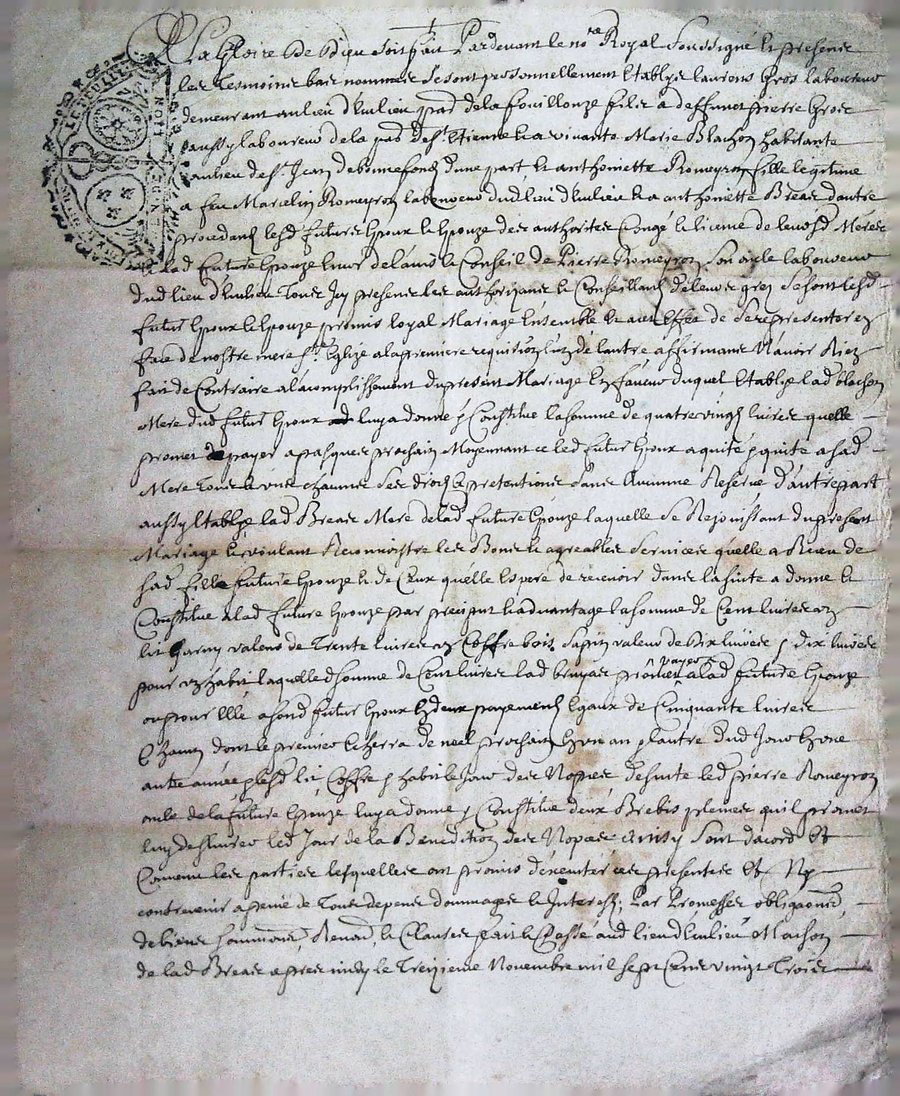 A la Gloire de Dieu soit fait Pardevant le no.re Royal soussigné et presens
les tesmoins bas nommes se sont personnellement establys laurens Gros laboureur
demeurant au lieu d'Eulieu par. de la fouillouze fils a deffunct pierre Gros
aussy laboureur de la par. de St. Etienne et a vivante Marie Blachon habitante
au lieu de St. Jean de bonnefond d'une part et anthoinette Romeyron fille legitime
a feu Marcelin Romeyron laboureur dud. lieu d'Eulieu et a anthoinette Breas d'autre
procedant lesd. futurs Epoux et Epouze des authorites Congé et licence de leursd. Meres
et lad. future Epouze encor de l'advis et Conseil de Pierre Romeyron son ayeul laboureur
dud. lieu d'Eulieu tous Icy presens les authorizans et Conseillans de leurs grez se sont lesd.
futurs Epoux et Epouze promis loyal Mariage Ensemble et a cet effet de se representer en
face de nostre mere Ste. Eglize a la premiere requisition l'un de l'autre affirmans N'avoir Rien
fait de Contraire a l'acomplissement du present Mariage En faveur duquel Establye lad. blachon
Mere dud. futur Epoux luy a donné et Constitué la somme de quatre vingt livres quelle
promet de payer a pasques prochain Moyennant ce led. futur Epoux a quité et quite a sad.
Mere tous et uns chacuns ses droits et pretentions sans Aucune Reserve d'autre part
aussy Establye lad. Breas Mere de lad. future Epouze laquelle se Rejouissant du present
Mariage Et voulant Reconnoistre les Bons et agreables services quelle a Receu de
sad. fille future Epouze et de Ceux qu'elle Espere de recevoir dans la suite a donné et
Constitué a lad. future Epouze par preciput et advantage la somme de Cent livres un
lit Garny valeur de Trente livres un Coffre bois sapin valeur de dix livres et dix livres
pour un habit laquelle d. somme de Cent livres lad. breas promet payer a lad. future Epouze
ou pour Elle a sond. futur Epoux En deux payements Egaux de Cinquante livres
Chacun dont le premier Escherra de noel prochain En un an et l'autre dud. Jour En une
autre année et lesd. lit Coffre et habit le Jour des Nopces de suite led. pierre Romeyron
ayeul de la future Epouze luy a donné et Constitué deux Brebis pleines qu'il promet
luy deslivrer led. Jour de la Benediction des Nopces Ainsy sont d'acord Et
Convenu les parties lesquelles ont promis d'executer ces presentes Et Ny
contrevenir a peine de Tous depens dommages et Interests; Par Promesses obligaons.
de biens soumions. Renaons. et Clauses fait et Passé aud. lieu d'Eulieu Maison
de lad. Breas apres midy le Treizieme Novembre mil sept Cens vingt Trois